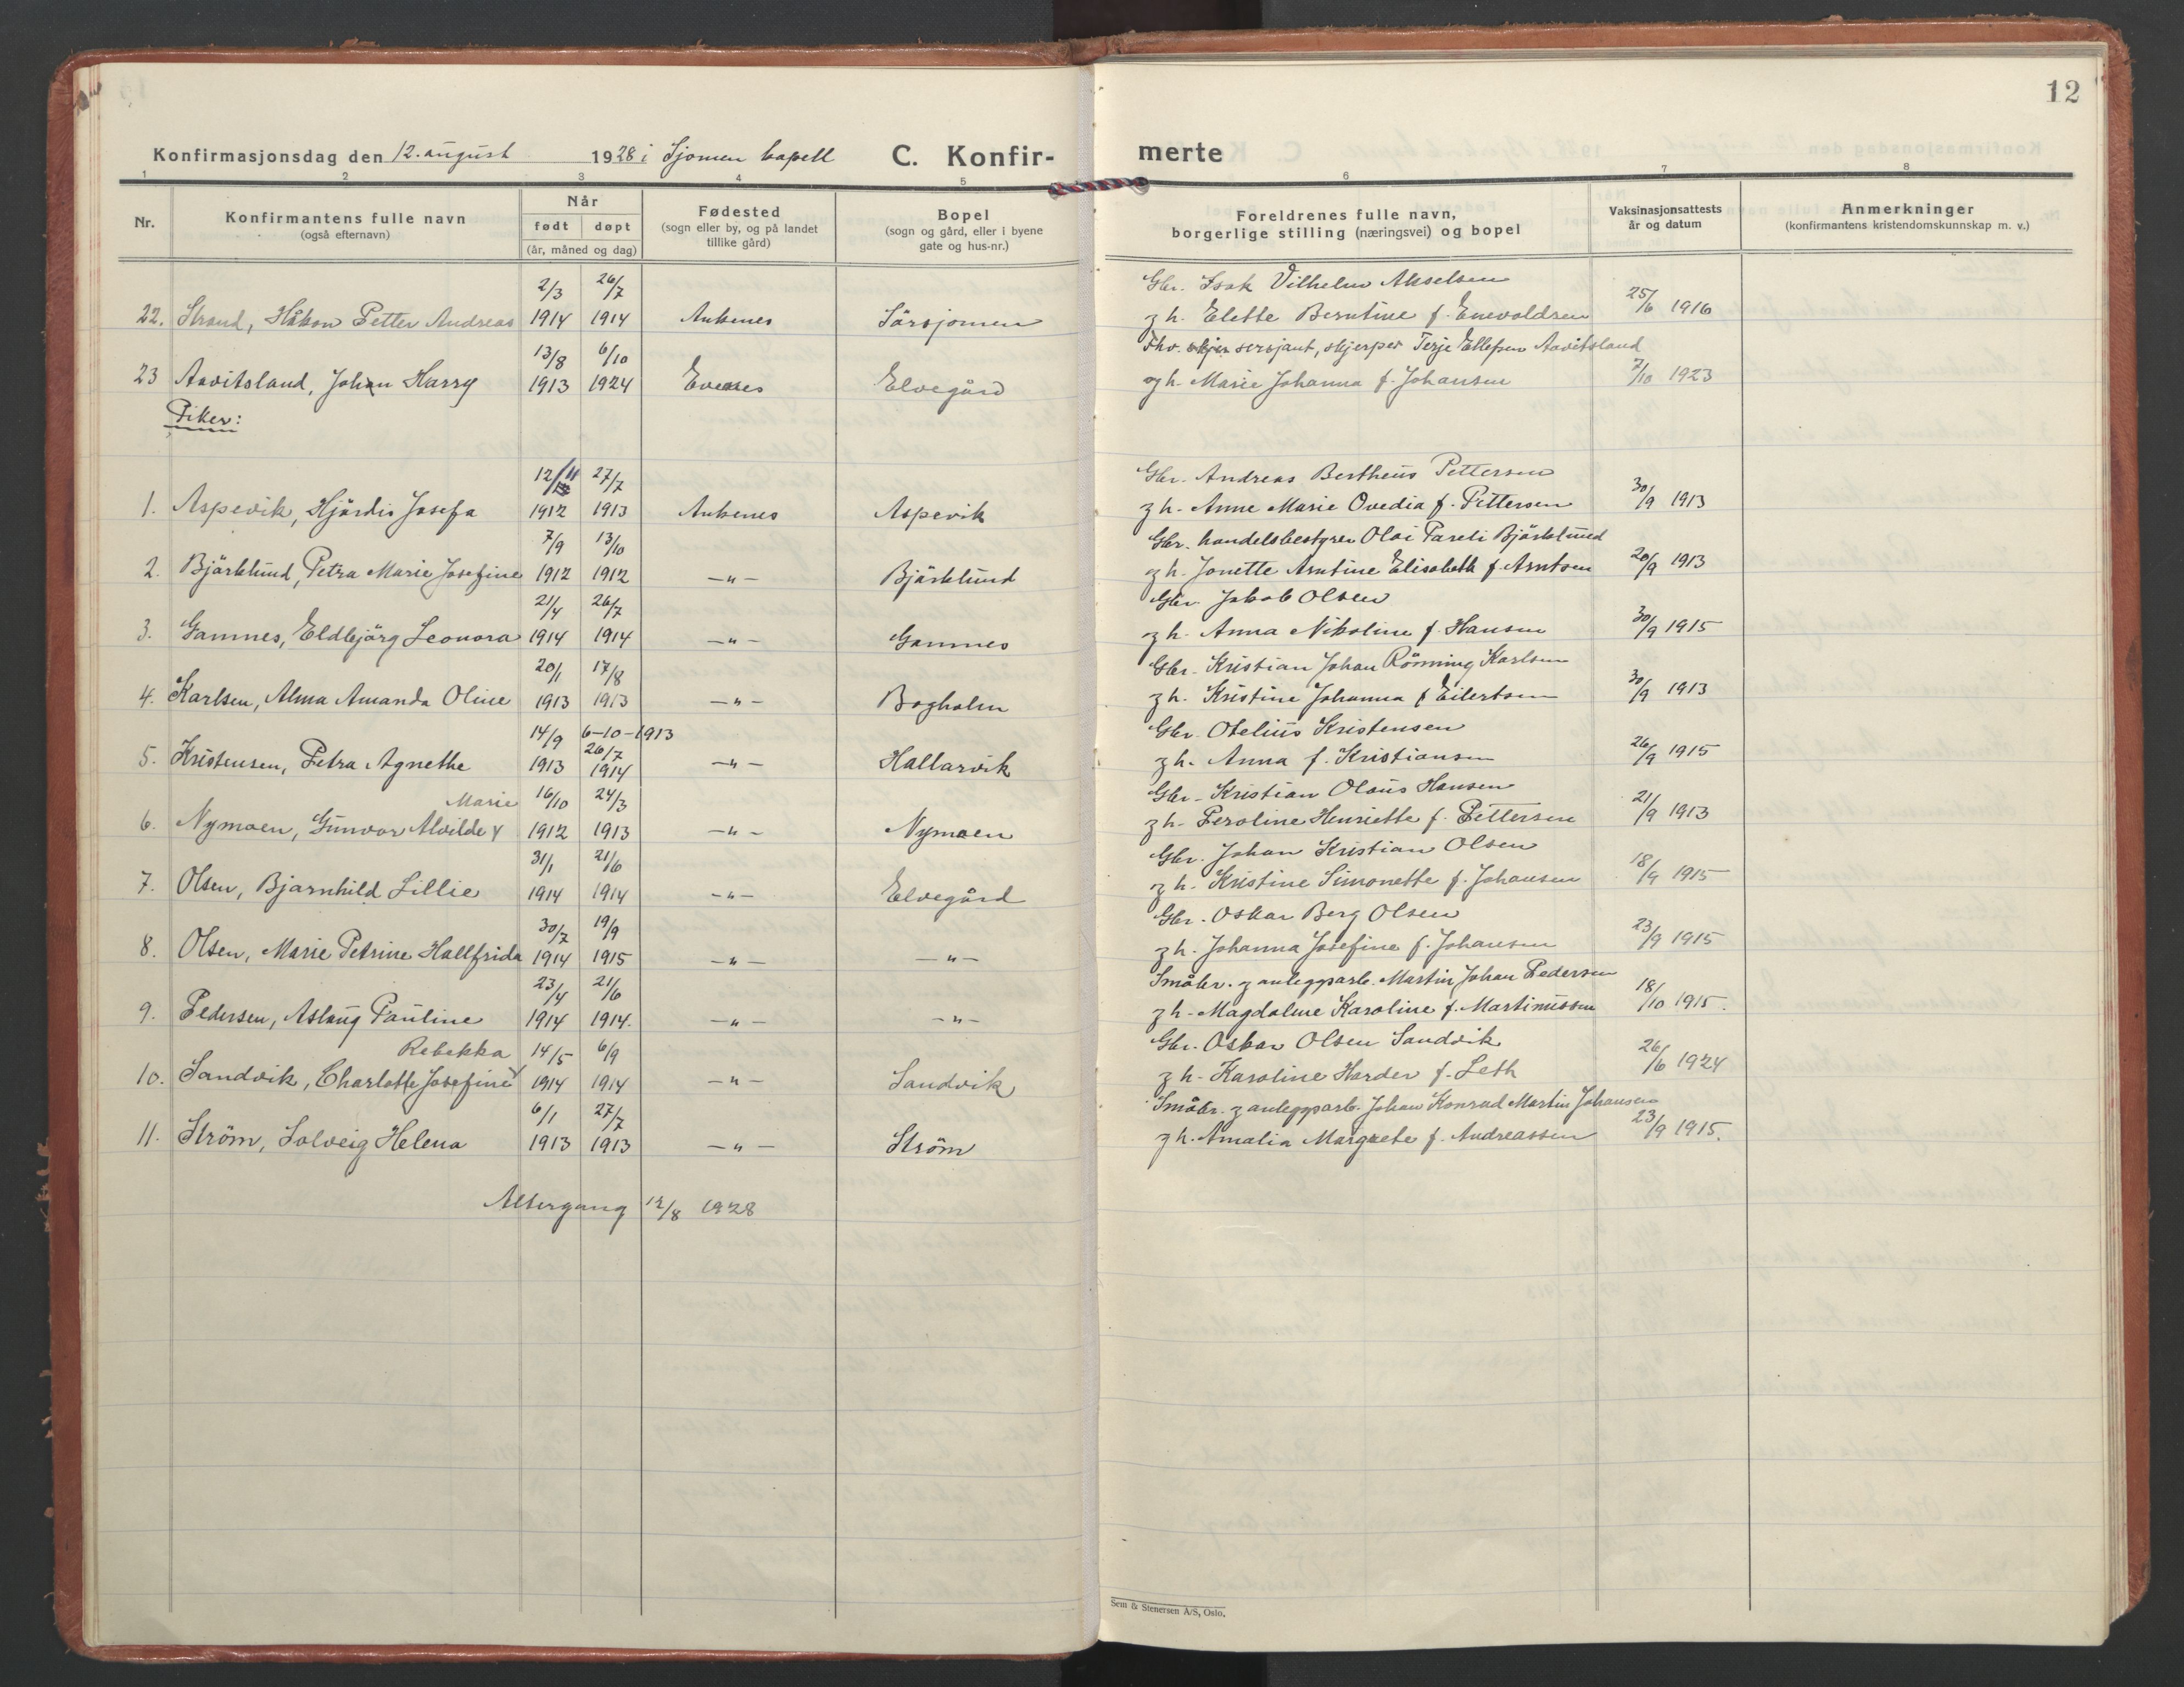 12
Konfirmasjonsdag den 12. august 1928 i Sjomen kapell C. Konfir- merte
1 2 3 4 5 6 7 8
Nr.
Konfirmantens fulle navn
(også efternavn)
Når
født døpt
(år, måned og dag)
Fødested
(sogn eller by, og på landet
tillike gård)
Bopel
(sogn og gård, eller i byene
gate og hus-nr.)
Foreldrenes fulle navn,
borgerlige stilling (næringsvei) og bopel
Vaksinasjonsattests
år og datum
Anmerkninger
(konfirmantens kristendomskunnskap m. v.)
2/3 26/7 Gbr. Isak Vilhelm Akselsen
22. Strand, Håkon Petter Andreas 1914 1914 Ankenes Sörsjomen z h. Elette Berntine f. Enevoldsen 25/6 1916
13/8 6/10 Fhv. sersjant, skjerper Terje Ellefsen Aavitsland
23 Aavitsland, Johan Harry 1913 1924 Evenes Elvegård og h. Marie Johanna f. Johansen 7/10 1923
Piker:
12/11 27/7 Gbr. Andreas Bertheus Pettersen
1. Aspevik, Hjördis Josefa 1912 1913 Ankenes Aspevik z h. Anne Marie Ovedia f. Pettersen 30/9 1913
7/9 13/10 Gbr. handelsbestyrer Olai Pareli Bjørklund
2. Bjärklund, Petra Marie Josefine 1912 1912 —"— Bjärklund og h. Jonette Arntine Elisabeth f. Arntsen 20/9 1913
21/4 26/7 Gbr. Jakob Olsen
3. Gamnes, Eldbjörg Leonora 1914 1914 —"— Gamnes z h. Anna Nikoline f. Hansen 30/9 1915
20/1 17/8 Gbr. Kristian Johan Rönning Karlsen
4. Karlsen, Alma Amanda Oline 1913 1913 —"— Bogholm z h. Kristine Johanna f Eilertsen 30/9 1913
14/9 6-10-1913 Gbr. Otelius Kristensen
26/7
5. Kristensen, Petra Agnethe 1913 1914 —"— Hallarvik z h. Anna f. Kristiansen 26/9 1915
Marie 16/10 24/3 Gbr. Kristian Olaus Hansen
6. Nymoen, Gunvor Alvilde 1912 1913 —"— Nymoen z h. Peroline Henriette f. Pettersen 21/9 1913
31/1 21/6 Gbr. Johan Kristian Olsen
7. Olsen, Bjarnhild Lillie 1914 1914 —"— Elvegård z h. Kristine Simonette f. Johansen 18/9 1915
30/7 19/9 Gbr. Oskar Berg Olsen
8. Olsen, Marie Petrine Hallfrida 1914 1915 —"— —"— z h. Johanna Josefine f. Johansen 23/9 1915
23/4 21/6 Småbr. z anleggsarb. Martin Johan Pedersen
9. Pedersen, Aslaug Pauline 1914 1914. —"— —"— z h. Magdalene Karoline f. Martinussen 18/10 1915.
Rebekka 14/5 6/9 Gbr. Oskar Olsen Sandvik
10. Sandvik, Charlotte Josefine 1914 1914 —"— Sandvik z h. Karoline Harder f. Leth 26/6 1924
6/1 27/7 Småbr. z anleggsarb. Johan Konrad Martin Johansen
11. Ström, Solveig Helena 1913 1913 —"— Ström z h. Amalia Margrete f. Andreassen 23/9 1915.
Altergang 12/8 1928
Sem & Stenersen A/S, Oslo.